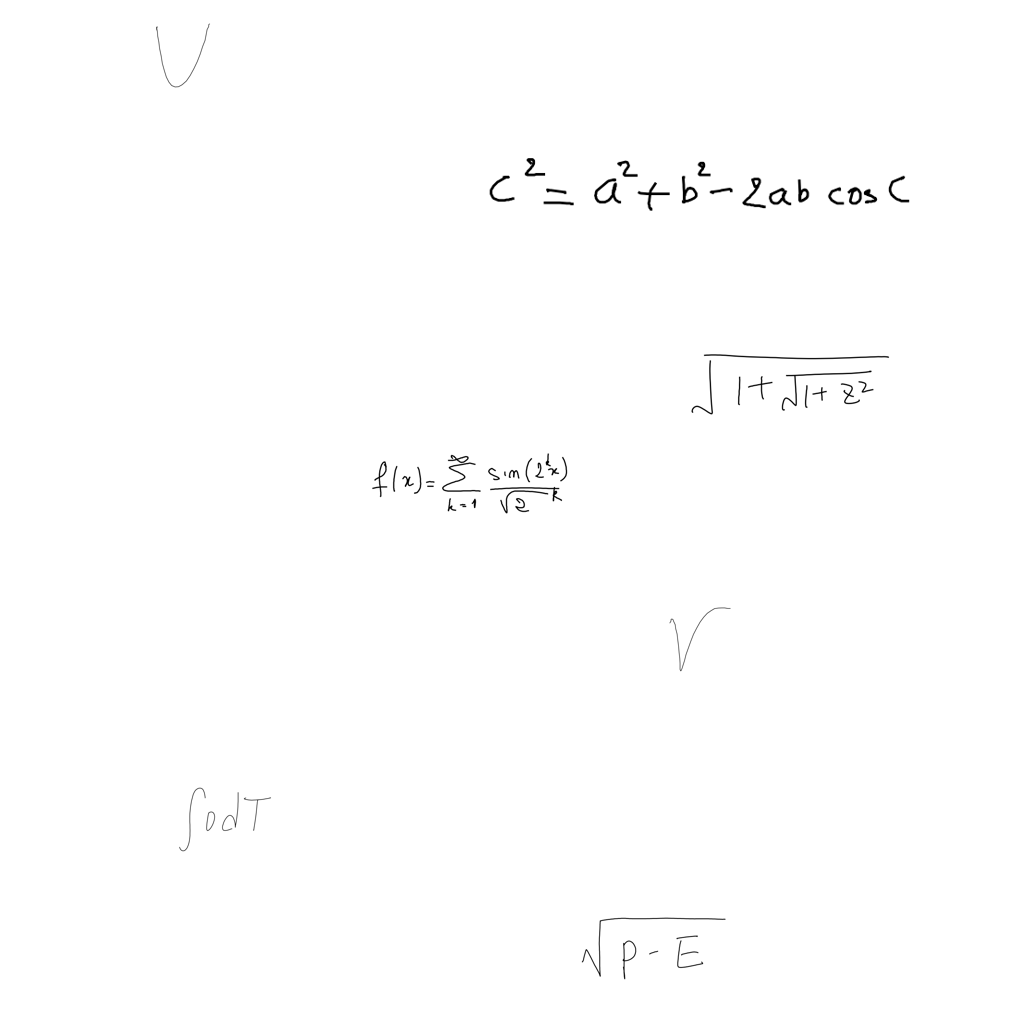 ∪
c² = a² + b² - 2ab cos C
√(1 + √(1 + z²))
f(x) = ∑_{k=1}^{∞} sin(2^k x) / √2^k
∫0dT
√(p - E)